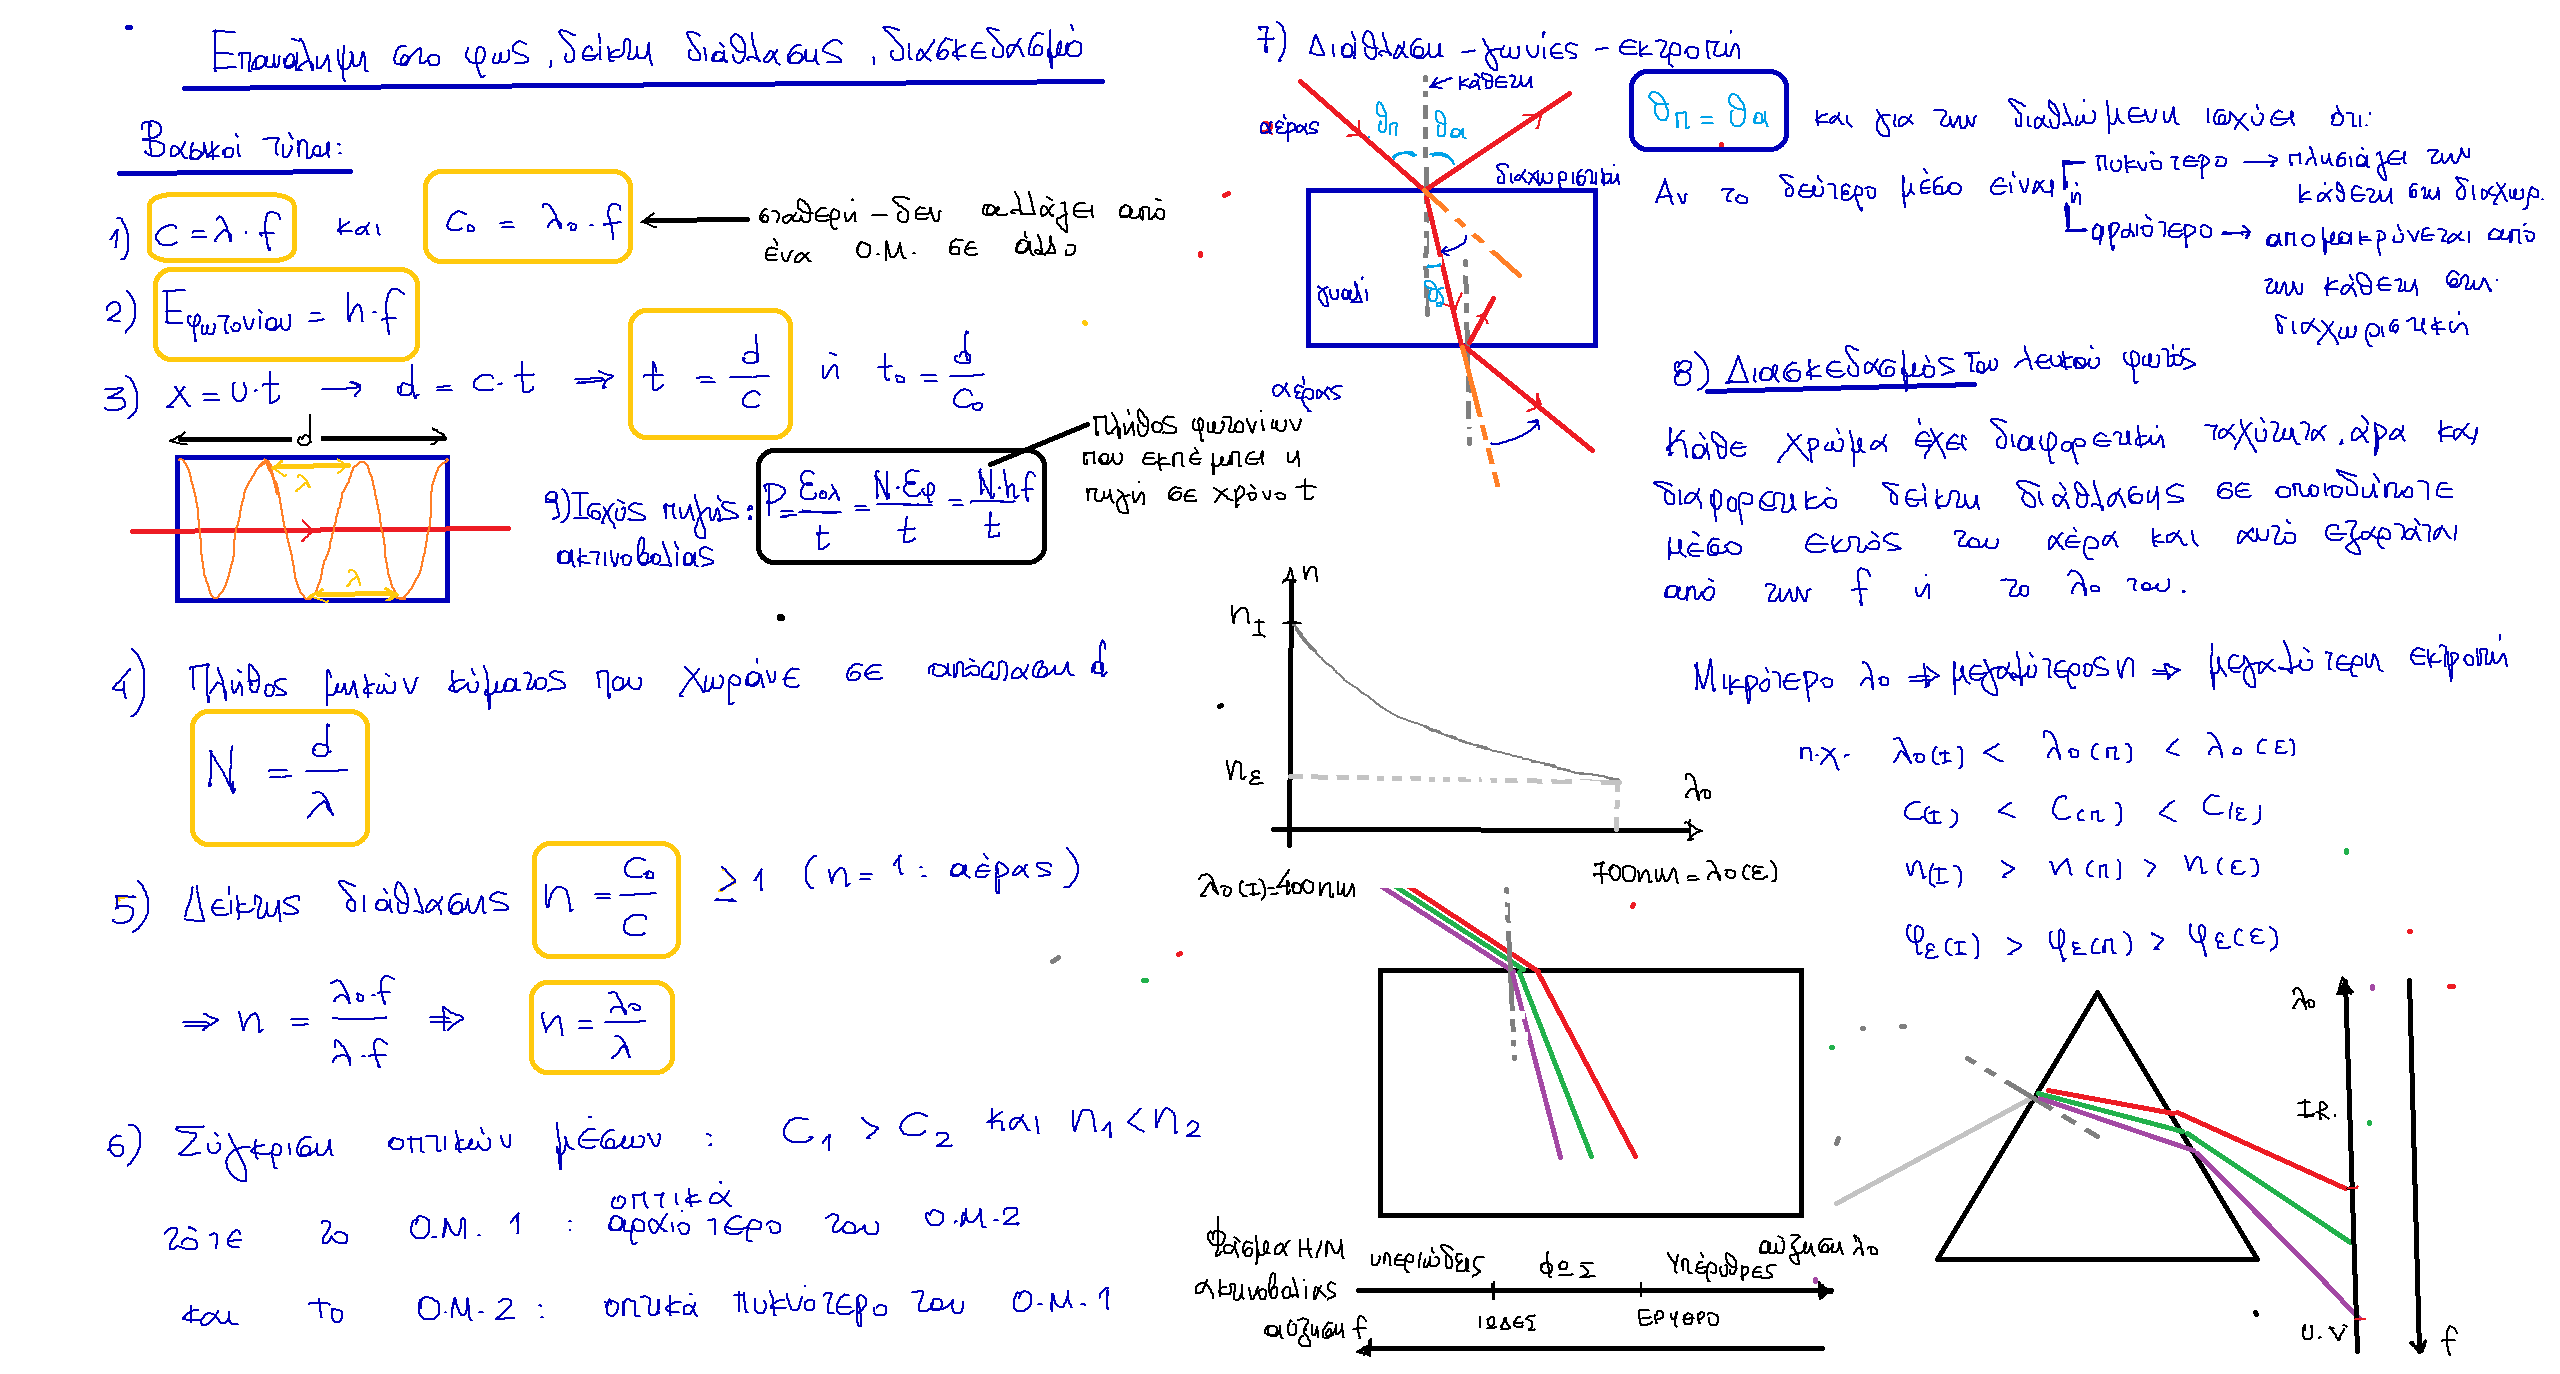 Επανάληψη στο φως, δείκτη διάθλασης, διασκεδασμό
Βασικοί τύποι:
1) c = λ · f και c₀ = λ₀ · f ← σταθερή - δεν αλλάζει από
ένα Ο.Μ. σε άλλο
2) Εφωτονίου = h · f
3) x = υ · t → d = c · t ⇒ t = d/c ή t₀ = d/c₀
d
λ
λ
9) Ισχύς πηγής: P = Εολ/t = N·Εφ/t = N·hf/t
ακτινοβολίας
Πλήθος φωτονίων
που εκπέμπει η
πηγή σε χρόνο t
4) Πλήθος μηκών κύματος που χωράνε σε απόσταση d
N = d/λ
5) Δείκτης διάθλασης n = c₀/c ≥ 1 (n = 1 : αέρας)
⇒ n = λ₀·f/λ·f ⇒ n = λ₀/λ
6) Σύγκριση οπτικών μέσων : c₁ > c₂ και n₁ < n₂
οπτικά
τότε το Ο.Μ. 1 : αραιότερο του Ο.Μ.2
και το Ο.Μ.2 : οπτικά πυκνότερο του Ο.Μ.1
7) Διάθλαση - γωνίες - εκτροπή
κάθετη
αέρας
θπ θα
διαχωριστική
γυαλί
αέρας
θπ = θα και για την διαθλώμενη ισχύει ότι:
Αν το δεύτερο μέσο είναι
πυκνότερο → πλησιάζει την
κάθετη στη διαχωρ.
ή
αραιότερο → απομακρύνεται από
την κάθετη στη
διαχωριστική
8) Διασκεδασμός του λευκού φωτός
Κάθε χρώμα έχει διαφορετική ταχύτητα, άρα και
διαφορετικό δείκτη διάθλασης σε οποιοδήποτε
μέσο εκτός του αέρα και αυτό εξαρτάται
από την f ή το λ₀ του.
n
nI
nε
λ₀
λ₀(Ι)=400nm
700nm = λ₀(ε)
Μικρότερο λ₀ ⇒ μεγαλύτερος n ⇒ μεγαλύτερη εκτροπή
π.χ. λ₀(Ι) < λ₀(π) < λ₀(ε)
c(Ι) < c(π) < c(ε)
n(Ι) > n(π) > n(ε)
φε(Ι) > φε(π) > φε(ε)
λ₀
I.R.
U.V
f
Φάσμα Η/Μ
ακτινοβολίας
υπεριώδεις ΦΩΣ Υπέρυθρες αύξηση λ₀
ΙΩΔΕΣ ΕΡΥΘΡΟ
αύξηση f